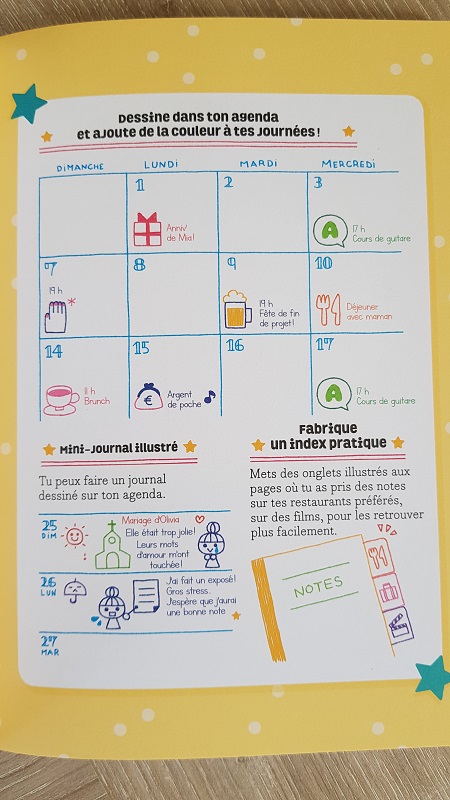 Dessine dans ton agenda
et ajoute de la couleur à tes journées !
DIMANCHE LUNDI MARDI MERCREDI
1 2 3
Anniv'
de Mia!
A
17 h
Cours de guitare
7 8 9 10
19 h
19 h
Fête de fin
de projet!
Déjeuner
avec maman
14 15 16 17
11 h
Brunch
€
Argent
de poche
A
17 h
Cours de guitare
Mini-journal illustré
Tu peux faire un journal
dessiné sur ton agenda.
25
DIM
Mariage d'Olivia
Elle était trop jolie!
Leurs mots
d'amour m'ont
touchée!
26
LUN
J'ai fait un exposé!
Gros stress.
J'espère que j'aurai
une bonne note
27
MAR
Fabrique
un index pratique
Mets des onglets illustrés aux
pages où tu as pris des notes
sur tes restaurants préférés,
sur des films, pour les retrouver
plus facilement.
NOTES